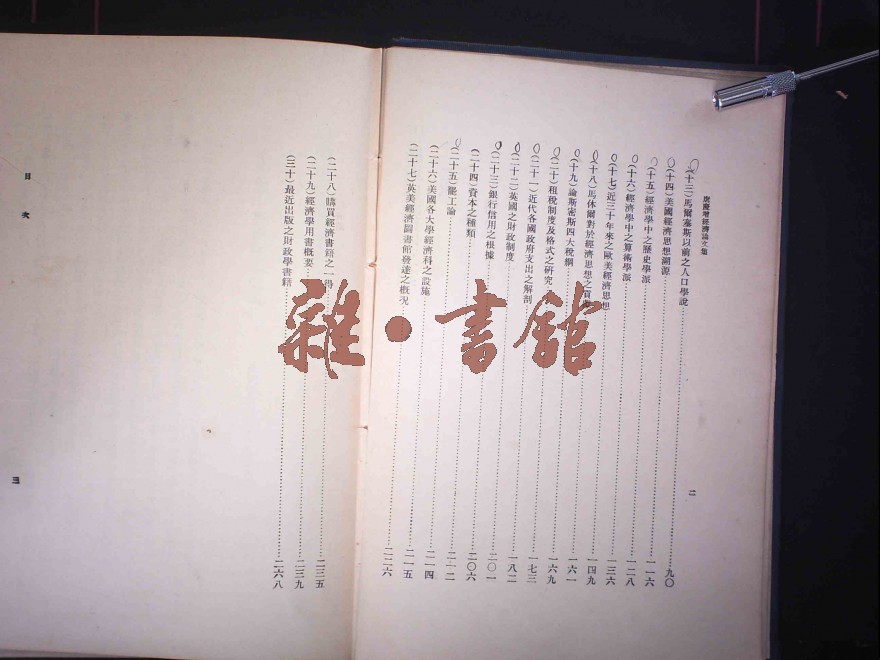 唐慶增經濟論文集
二
(十三)馬爾塞斯以前之人口學說……九〇
(十四)美國經濟思想溯源……一一六
(十五)經濟學中之歷史學派……一二八
(十六)經濟學中之算術學派……一三六
(十七)近三十年來之歐美經濟思想……一四九
(十八)馬休爾對於經濟思想之貢……一六一
(十九)論斯密斯四大稅綱……一六九
(二十)租稅制度及格式之研究……一七三
(二十一)近代各國政府支出之解剖……一八二
(二十二)英國之財政制度……二〇一
(二十三)銀行信用之根據……二〇六
(二十四)資本之種類……二一二
(二十五)罷工論……二一四
(二十六)美國各大學經濟科之設施……二一五
(二十七)英美經濟圖書館發達之概況……二二六
(二十八)購買經濟書籍之一得……二三五
(二十九)經濟學用書概要……二三九
(三十)最近出版之財政學書籍……二六八
目次
三
雜·書館